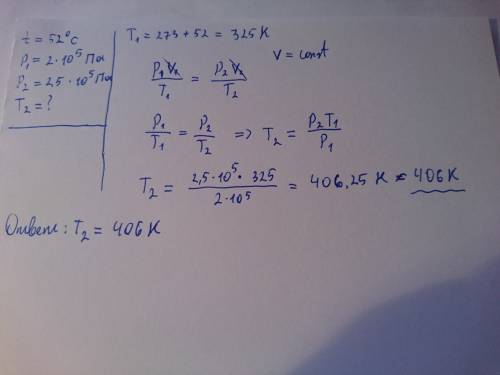 t = 52°C
P₁ = 2 · 10⁵ Па
P₂ = 2,5 · 10⁵ Па
T₂ = ?
T₁ = 273 + 52 = 325 K
V = const
P₁V₁/T₁ = P₂V₂/T₂
P₁/T₁ = P₂/T₂ => T₂ = P₂T₁/P₁
T₂ = 2,5 · 10⁵ · 325 / 2 · 10⁵ = 406,25 K ≈ 406 K
Ответ: T₂ = 406 K